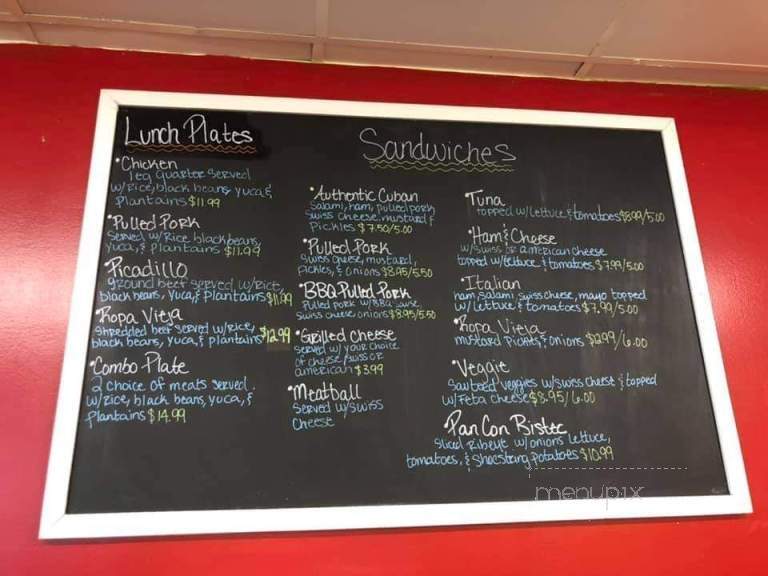 Lunch Plates
•Chicken
leg quarter served
w/Rice, black beans yuca, &
plantains $11.99
•Pulled Pork
served w/Rice black beans,
yuca, & plantains $11.99
Picadillo
ground beef served w/rice,
black beans, yuca, & plantains $11.99
•Ropa Vieja
shredded beef served w/rice,
black beans, yuca, & plantains $12.99
•Combo Plate
2 choice of meats served.
w/rice, black beans, yuca, &
plantains $14.99
Sandwiches
•Authentic Cuban
Salami, ham, pulled pork
swiss cheese, mustard &
Pickles $7.50/5.00
•Pulled Pork
swiss cheese, mustard,
pickles, & onions $8.95/5.50
•BBQ Pulled Pork
Pulled pork w/BBQ sauce,
swiss cheese onions $8.95/5.50
•Grilled Cheese
served w/ your choice
of cheese/swiss or
american $3.99
•Meatball
Served w/swiss
Cheese
•Tuna
topped w/lettuce & tomatoes $8.99/5.00
•Ham & Cheese
w/swiss or american cheese
topped w/lettuce & tomatoes $7.99/5.00
•Italian
ham, salami, swiss cheese, mayo topped
w/lettuce & tomatoes $7.99/5.00
•Ropa Vieja
mustard Pickles, & onions /6.00
•Veggie
sauteed veggies w/swiss cheese & topped
w/Feta cheese $8.95/6.00
•Pan Con Bistec
sliced Ribeye w/onions lettuce,
tomatoes, & shoestring potatoes $10.99
menupix